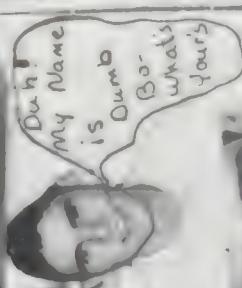 Duh!
My Name
is
Dumb
Bo-
What's
Your's